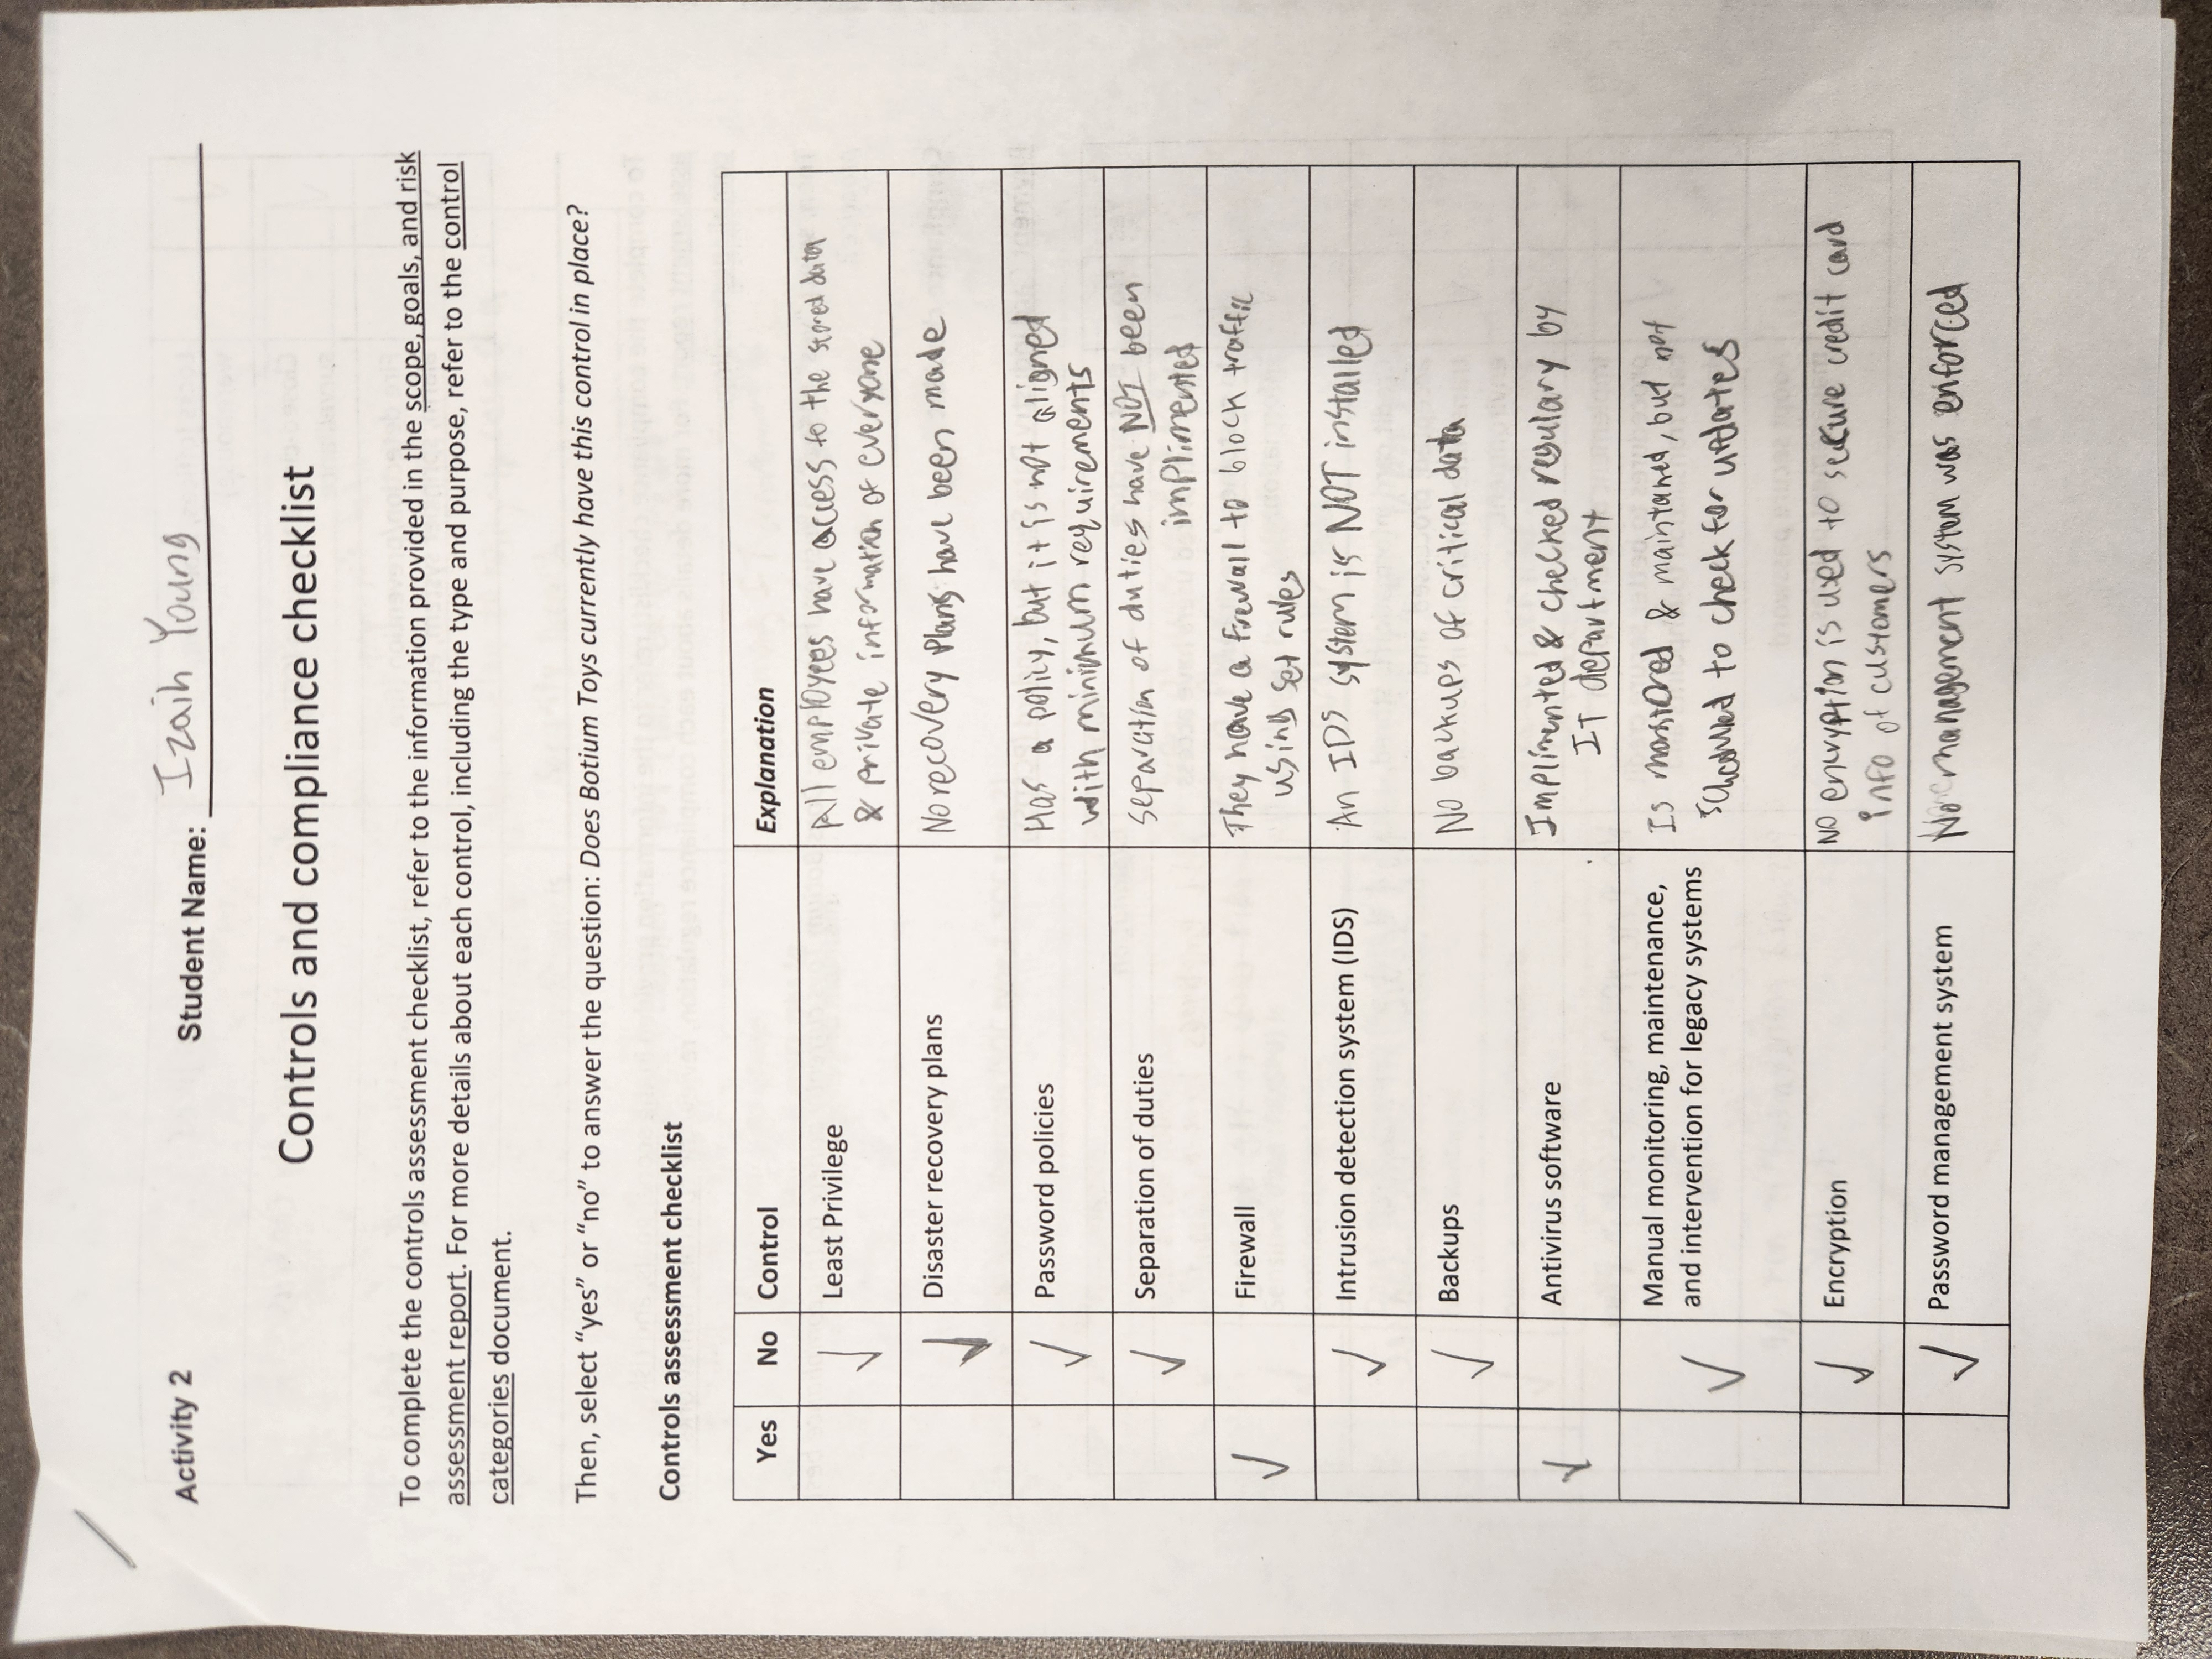 Activity 2
Student Name: Izaih Young
Controls and compliance checklist
To complete the controls assessment checklist, refer to the information provided in the scope, goals, and risk
assessment report. For more details about each control, including the type and purpose, refer to the control
categories document.
Then, select “yes” or “no” to answer the question: Does Botium Toys currently have this control in place?
Controls assessment checklist
Yes No Control Explanation
✓ Least Privilege All employees have access to the stored data
& private information of everyone
✓ Disaster recovery plans No recovery plans have been made
✓ Password policies Has a policy, but it is not aligned
with minimum requirements
✓ Separation of duties separation of duties have NOT been
implimented
✓ Firewall They have a firewall to block traffic
using set rules
✓ Intrusion detection system (IDS) An IDS system is NOT installed
✓ Backups No backups of critical data
✓ Antivirus software Implimented & checked regulary by
IT department
Manual monitoring, maintenance, Is monitored & maintained, but not
✓ and intervention for legacy systems scheduled to check for updates
✓ Encryption No encryption is used to secure credit card
info of customers
✓ Password management system No management system was enforced